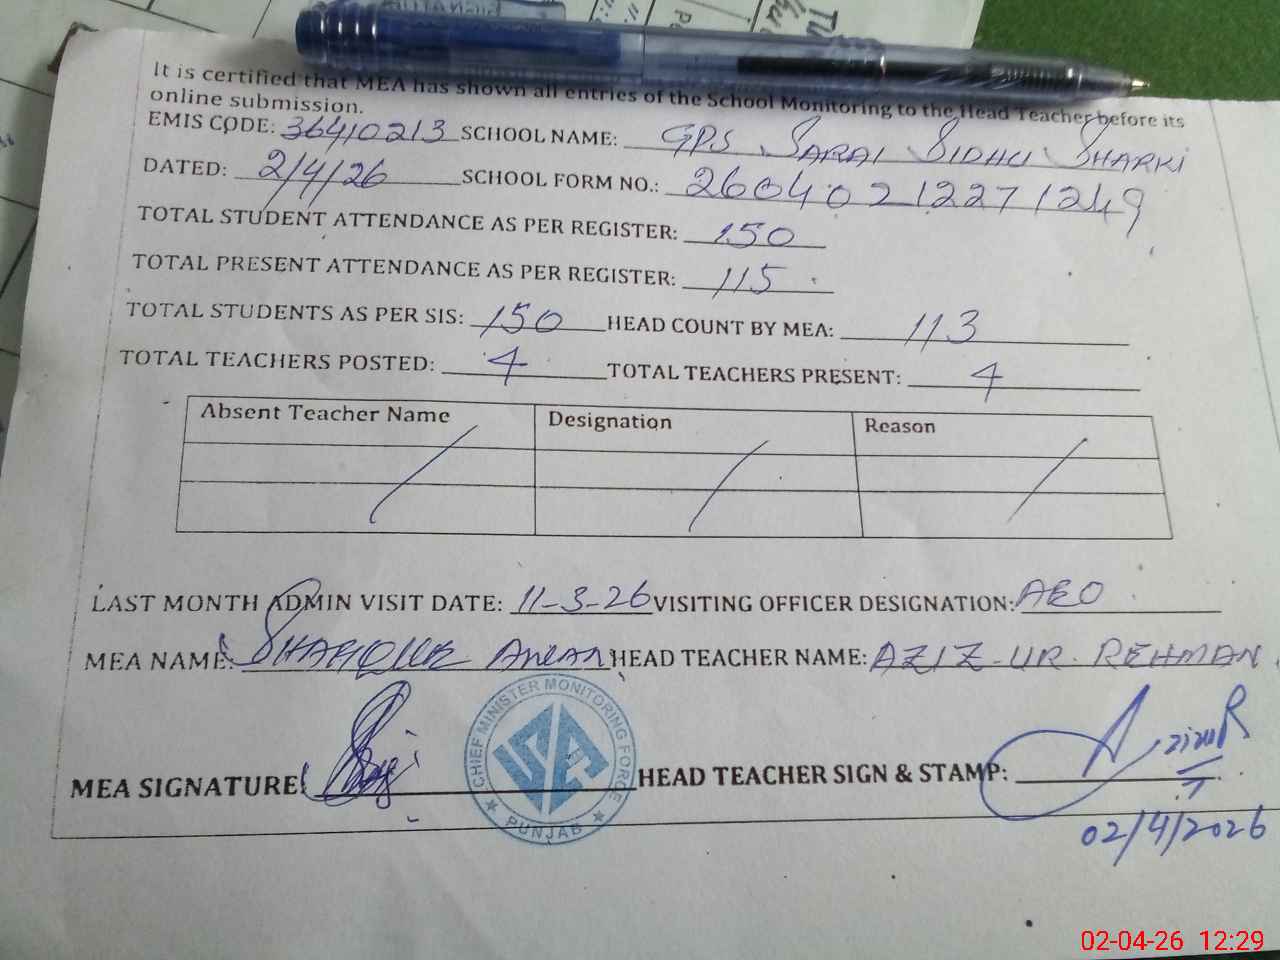 It is certified that MEA has shown all entries of the School Monitoring to the Head Teacher before its
online submission.
EMIS CODE: 36410213 SCHOOL NAME: GPS SARAI SIDHU SHARKI
DATED: 2/4/26 SCHOOL FORM NO.: 26040212271249
TOTAL STUDENT ATTENDANCE AS PER REGISTER: 150
TOTAL PRESENT ATTENDANCE AS PER REGISTER: 115
TOTAL STUDENTS AS PER SIS: 150 HEAD COUNT BY MEA: 113
TOTAL TEACHERS POSTED: 4 TOTAL TEACHERS PRESENT: 4
Absent Teacher Name Designation Reason
LAST MONTH ADMIN VISIT DATE: 11-3-26 VISITING OFFICER DESIGNATION: AEO
MEA NAME: HEAD TEACHER NAME: AZIZ-UR-REHMAN
CHIEF MINISTER MONITORING FORCE
PUNJAB
MEA SIGNATURE: HEAD TEACHER SIGN & STAMP:
02/4/2026
02-04-26 12:29